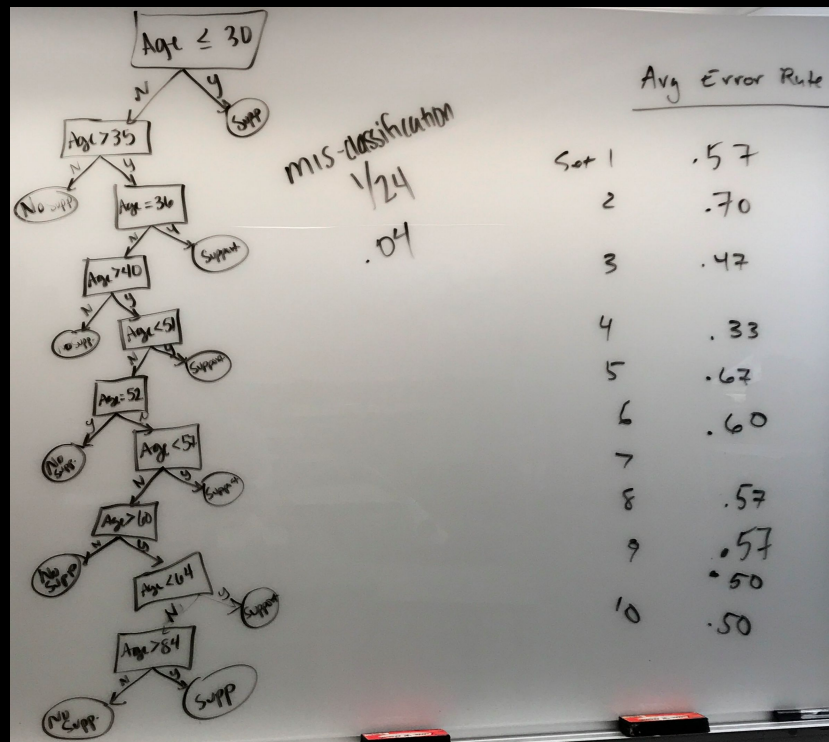 Age ≤ 30
N
Y
Supp
Age > 35
N
Y
No supp
Age = 36
N
Y
Support
Age > 40
N
Y
No supp.
Age < 51
N
Y
Support
Age = 52
Y
N
No Supp.
Age < 57
N
Y
Support
Age > 60
N
Y
No Supp
Age < 64
N
Y
Support
Age > 84
N
Y
No Supp.
Supp
mis-classification
1/24
.04
Avg Error Rate
Set 1 .57
2 .70
3 .47
4 .33
5 .67
6 .60
7
8 .57
9 .57
.50
10 .50